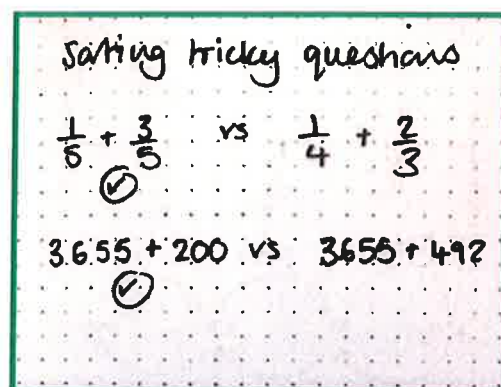 Sorting tricky questions
1/5 + 3/5 vs 1/4 + 2/3
✓
3655 + 200 vs 3655 + 492
✓